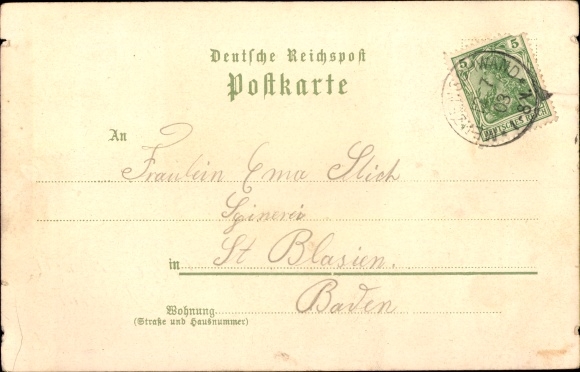 Deutsche Reichspost
Postkarte
5 5
DEUTSCHES REICH
WAND
03
An
Fräulein Ema Stich
St Blasien.
in
Baden
Wohnung
(Straße und Hausnummer)